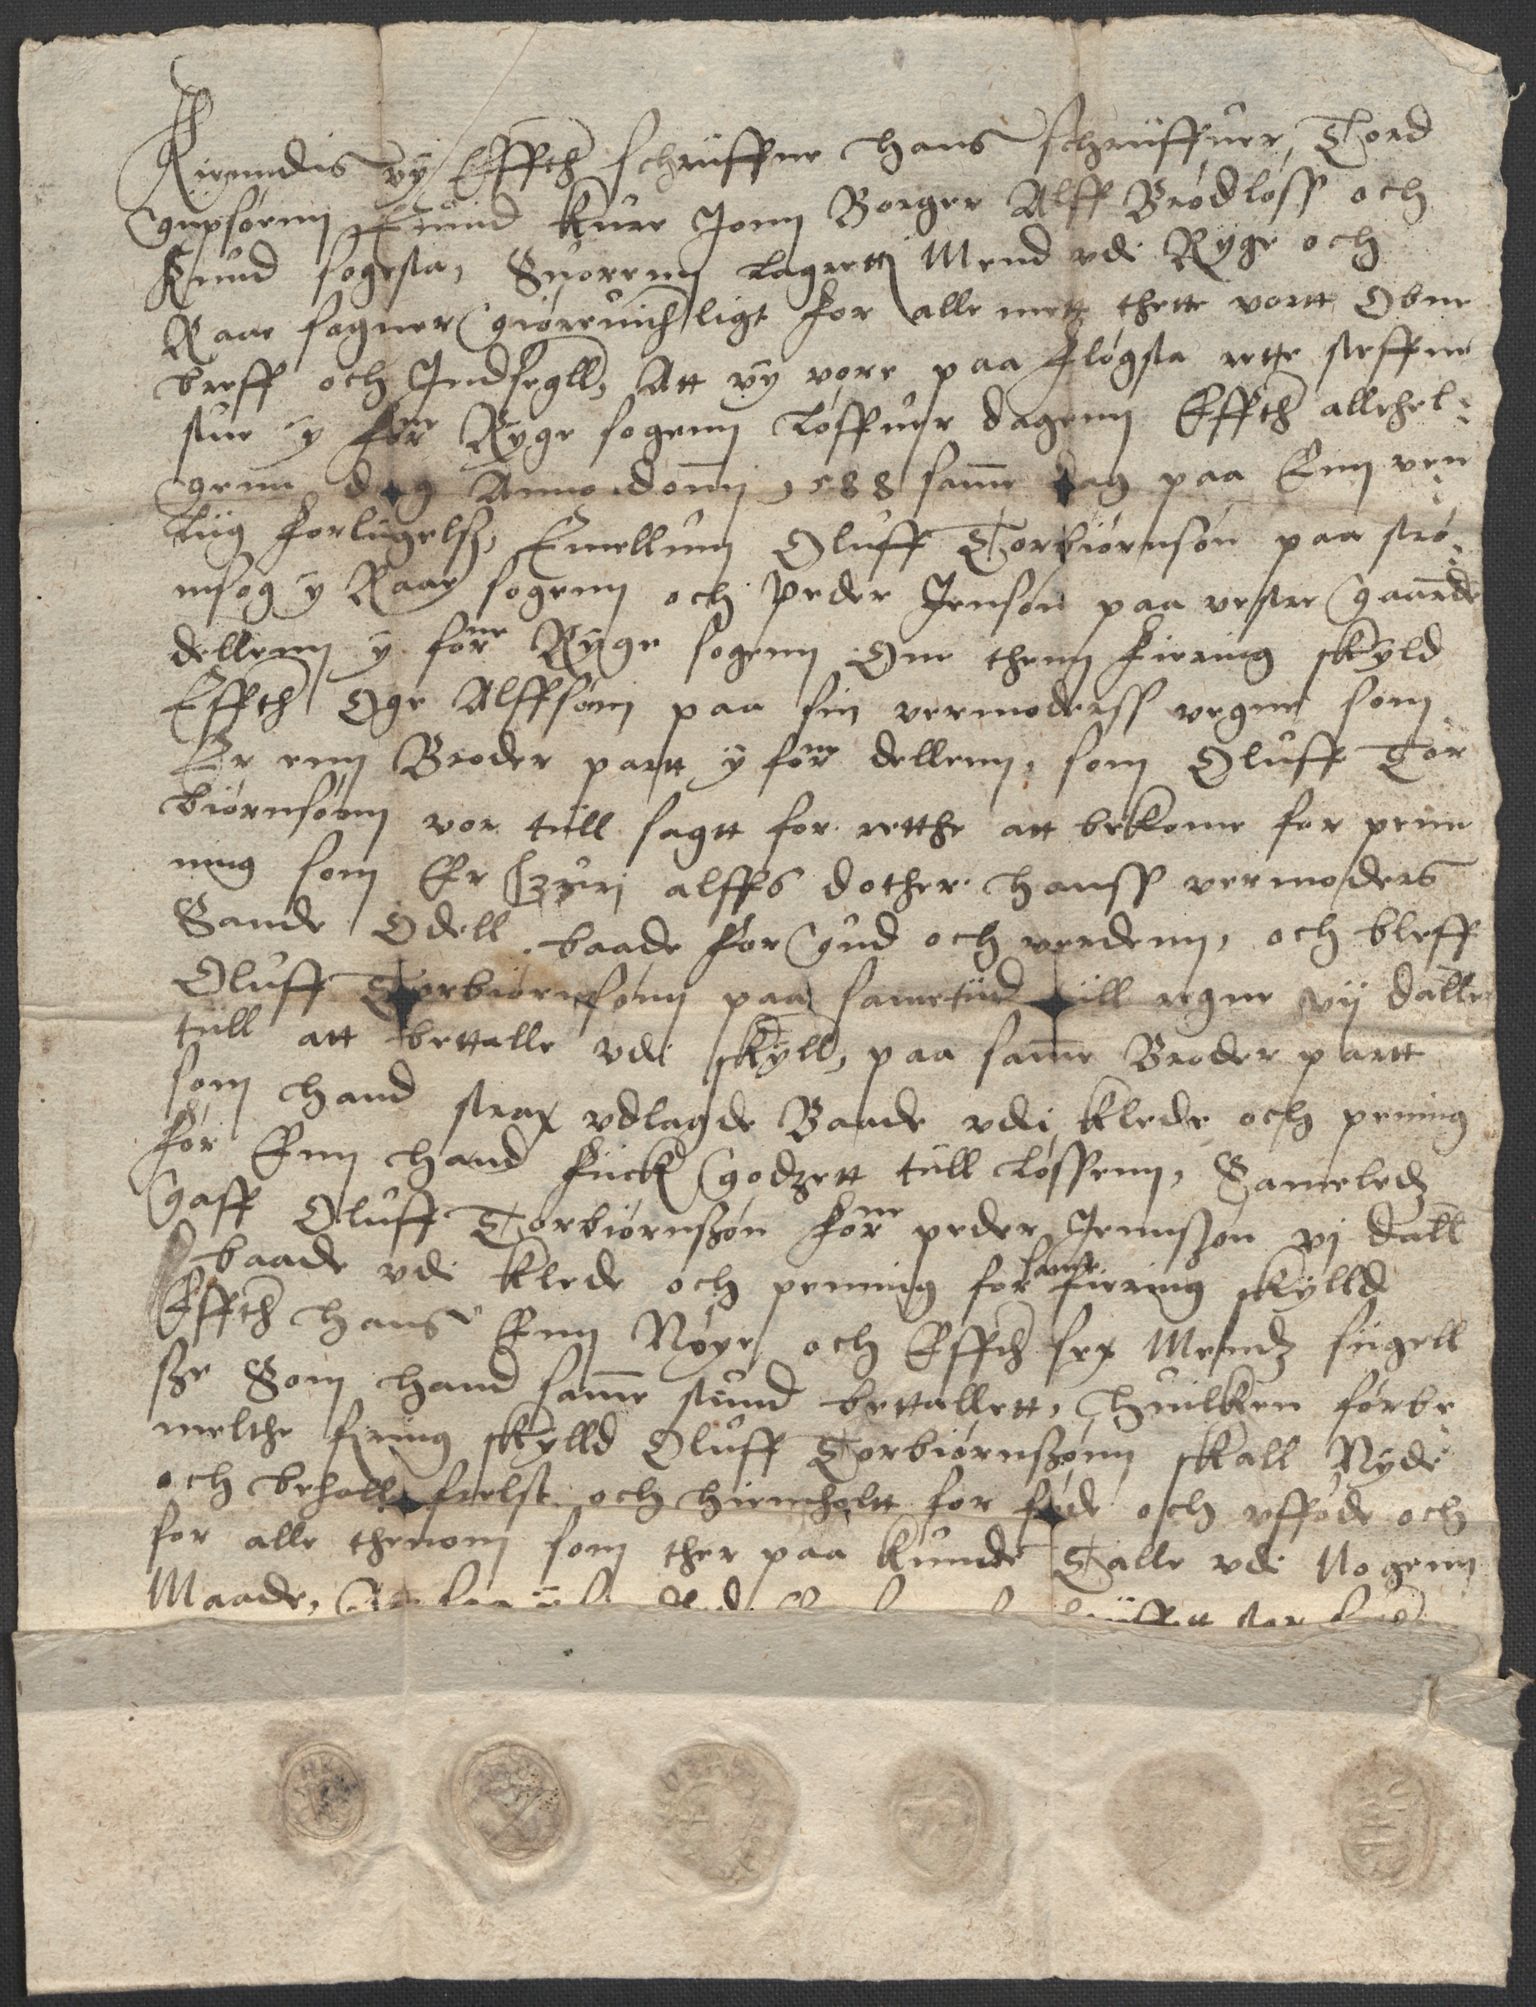 Kiendis vy Effth schriffne hans schriffuer, Tord
gupsønn Emind kure Jonn Borger Alff Brødløss och
Knud sogesta, Suorenn lagrett Mend vdi Ryge och
Raae sogner giøre vitthligt for alle mett thette vortt Obne
breff och Indsegll, Att vy vore paa Fløgsta rette steffne
stue y forne Ryge sogenn løffuer dagenn Effth allehel-
genn dag Anno domni 1588 same dag paa Enn ven
liig forligelsse, Emellum Oluff Torbiørnsøn paa strø-
msog y Raae sogenn och Peder Jensøn paa vestre gaarde
dellenn y forne Ryge sogenn Om thenn fiering skyld
Effth Oge Alffsønn paa sin vermoderss vegne som
Er enn Broder partt y forne dellenn, som Oluff Tor
biørnsønn vor till sagtt for retthe att bekome for penn
ning som Er Szyri alffs dother hanss vermoders
Sande Odell baade for gud och verdenn, och bleff
Oluff Torbiørnsønn paa sametiid till regne vij dalle
till att bettalle vdi skyll, paa same Broder partt
som hand strax vdlagde Baade vdi klede och pening
for Enn hand fick godzett till løssenn, Sameledz
gaff Oluff Torbiørnszøn forne peder Jennszøn vj dall
baade vdi klede och penning for same fiering skylld
Effth hans Enn Nøye och Effth sex Mendz siigell
sze Som hand same stund bettallett, Huilken førbe-
melthe firing skylld Oluff Torbiørnszønn skall Nyde
och beholle frelst och hiemholtt for føde och vføde och
for alle thenom som ther paa kunde Talle vdi Nogenn
Maade,